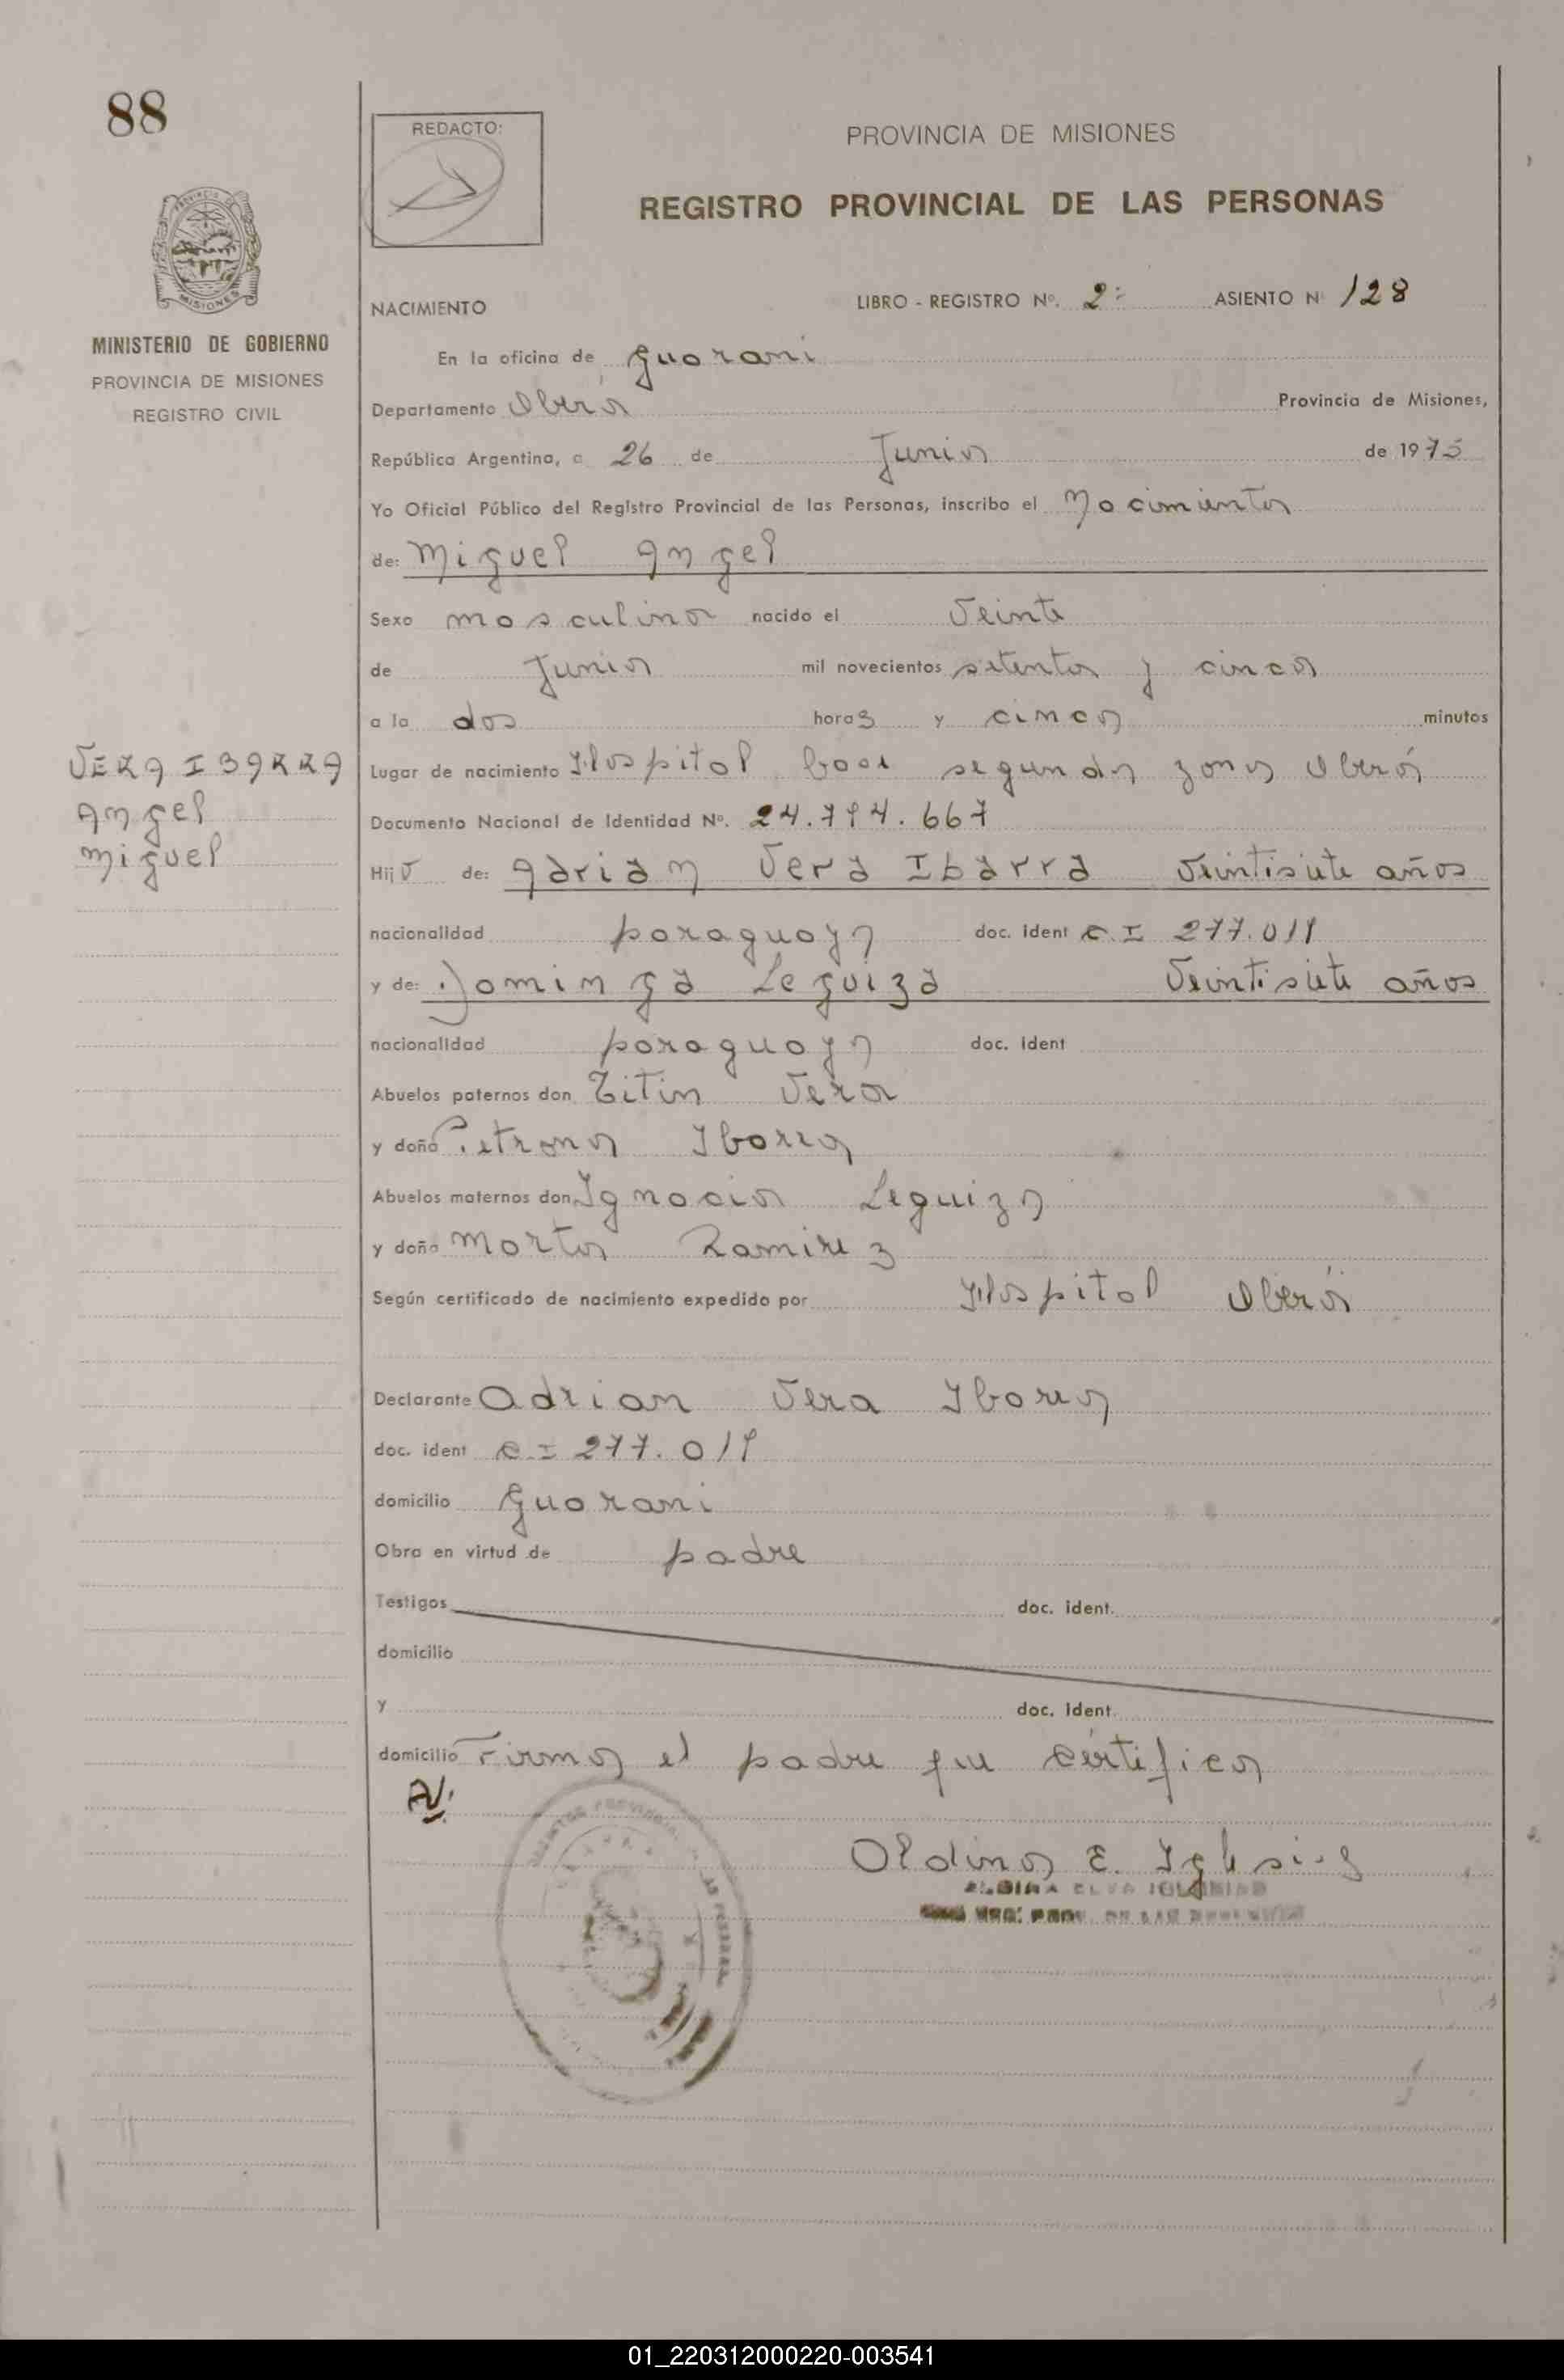 88
REDACTO:
PROVINCIA DE MISIONES
REGISTRO PROVINCIAL DE LAS PERSONAS
MISIONES
MINISTERIO DE GOBIERNO
PROVINCIA DE MISIONES
REGISTRO CIVIL
NACIMIENTO LIBRO - REGISTRO Nº. 2º ASIENTO Nº 128
En la oficina de Guarani
Departamento Oberá Provincia de Misiones,
República Argentina, a 26 de Junio de 1975
Yo Oficial Público del Registro Provincial de las Personas, inscribo el Nacimiento
de: Miguel Angel
Sexo masculino nacido el Veinte
de Junio mil novecientos setenta y cinco
a la dos horas y cinco minutos
VERA IBARRA
Angel
Miguel
Lugar de nacimiento Hospital base segunda zona Oberá
Documento Nacional de Identidad Nº. 24.794.667
Hijo de: Adrian Vera Ibarra Veintisiete años
nacionalidad paraguaya doc. ident C.I 277.019
y de: Dominga Leguiza Veintisiete años
nacionalidad paraguaya doc. ident
Abuelos paternos don Titin Vera
y doña Petrona Ibarra
Abuelos maternos don Ignacio Leguiza
y doña Marta Ramirez
Según certificado de nacimiento expedido por Hospital Oberá
Declarante Adrian Vera Ibarra
doc. ident C.I 277.019
domicilio Guarani
Obra en virtud de padre
Testigos doc. ident.
domicilio
y doc. ident.
domicilio Firma el padre que certifica
Aldina E. Iglesias
01_220312000220-003541